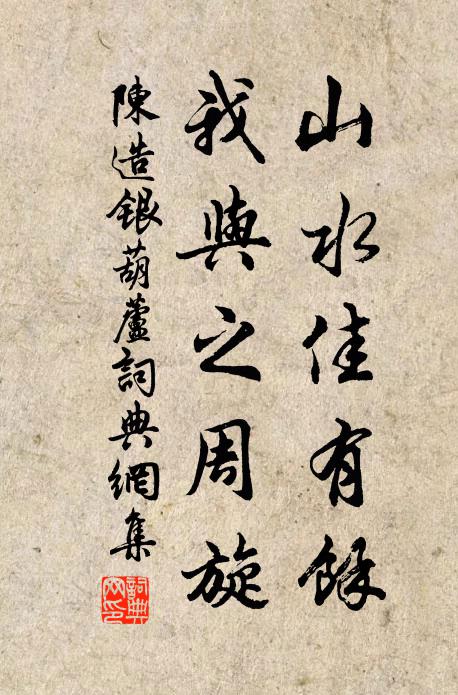 山水佳有餘
我與之周旋
陳造銀葫蘆詞典網集
詞典
网印